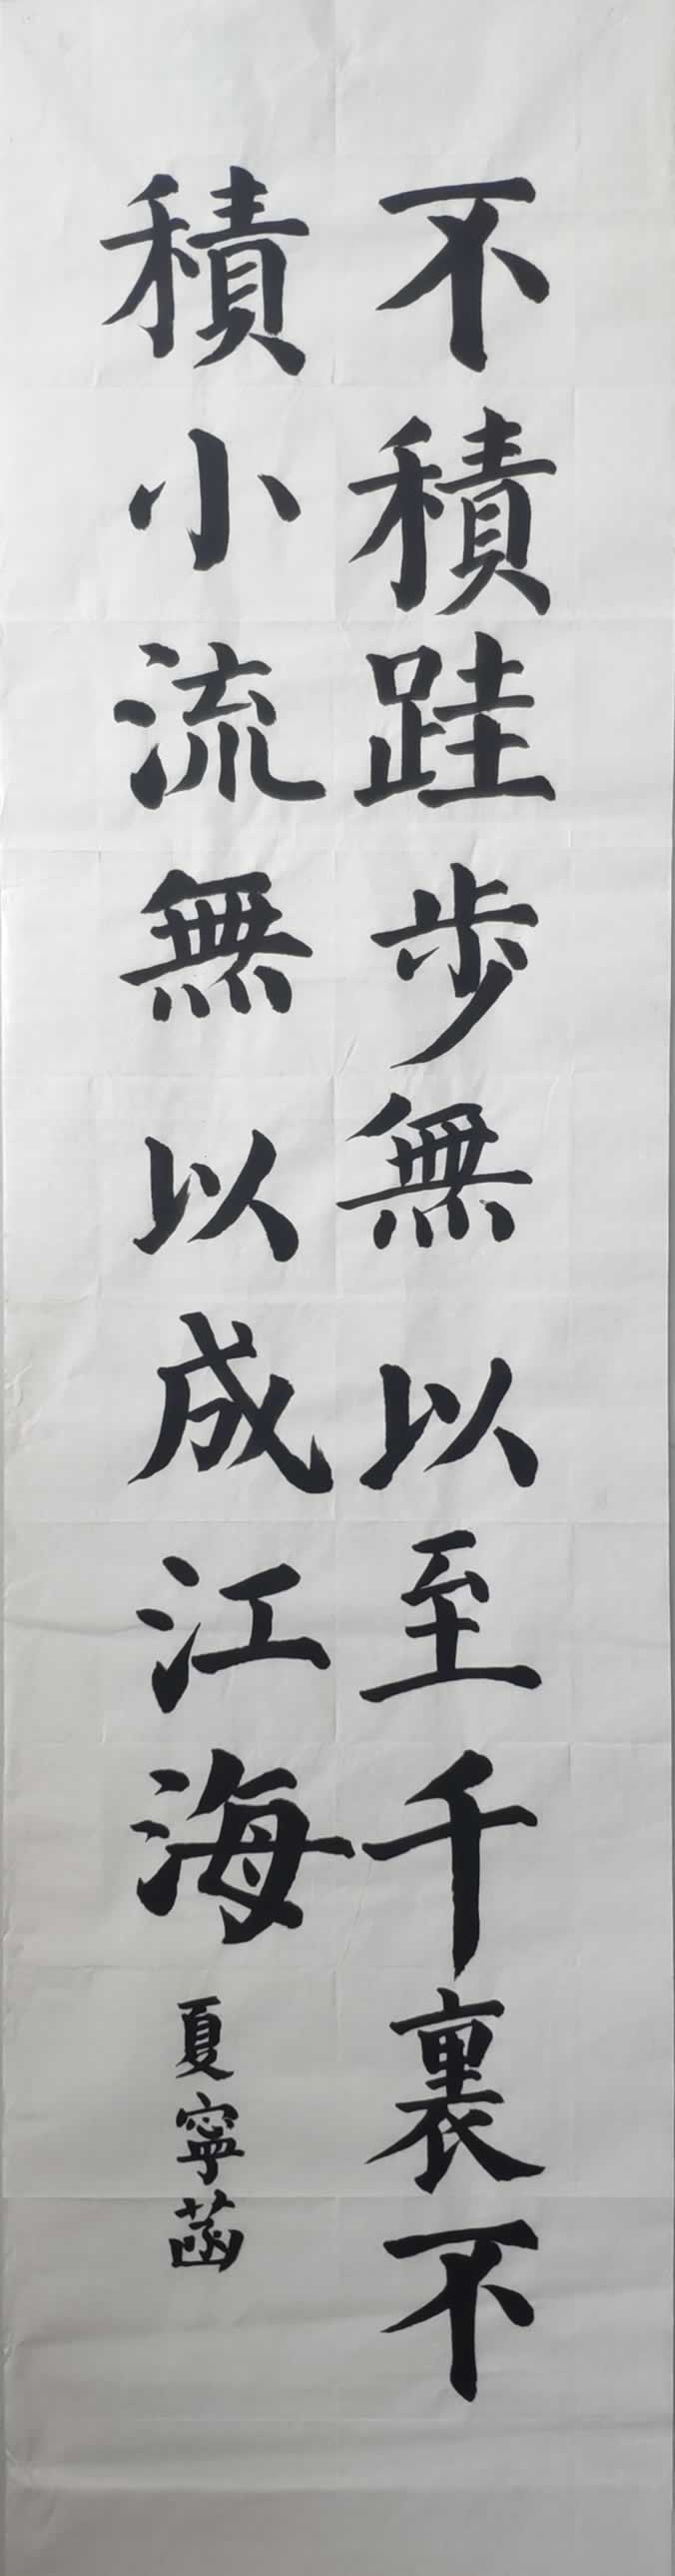 不積跬步無以至千裏不
積小流無以成江海
夏寧菡